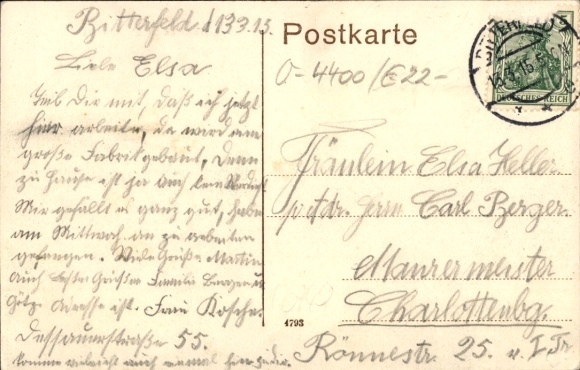 Bitterfeld d 13.3.15.
Liebe Elsa
Teil Dir mit, daß ich jetzt
hier arbeite, da wird eine
große Fabrik gebaut, denn
zu Hause ist ja auch kein Verdienst
Mir gefällt es ganz gut, habe
am Mittwoch an zu arbeiten
gefangen. Viele Grüße Martin
Auch beste Grüße Familie Berger u.
Adresse ist. Frau Kosche.
Dessauerstraße 55.
komme vielleicht auch einmal hier
Postkarte
0-4400/E22-
DEUTSCHES REICH
Fräulein Elsa Heller
p. Adr. Herrn Carl Berger
Maurermeister
Charlottenbg.
Rönnestr. 25. v. I Tr.
4793